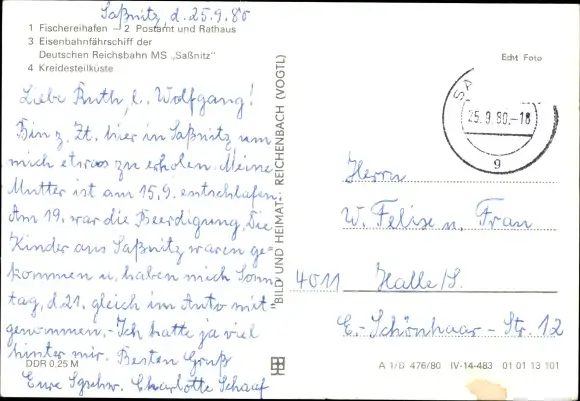 Saßnitz, d. 25.9.80
1 Fischereihafen – 2 Postamt und Rathaus
3 Eisenbahnfährschiff der
Deutschen Reichsbahn MS „Saßnitz"
4 Kreidesteilküste
Liebe Ruth, l. Wolfgang!
Bin z. Zt. hier in Saßnitz, um
mich etwas zu erholen. Meine
Mutter ist am 15.9. entschlafen.
Am 19. war die Beerdigung. Die
Kinder aus Saßnitz waren ge=
kommen u. haben mich Sonn
tag, d. 21. gleich im Auto mit=
genommen. - Ich hatte ja viel
hinter mir. Besten Gruß
Eure Charlotte Schaaf
DDR 0,25 M
BILD UND HEIMAT · REICHENBACH (VOGTL)
Echt Foto
SA
25.9.80.-18
9
Herrn
W. Felixe u. Frau
4011 Halle/S.
E.-Schönhaar-Str. 12
A 1/B 476/80 IV-14-483 01 01 13 101